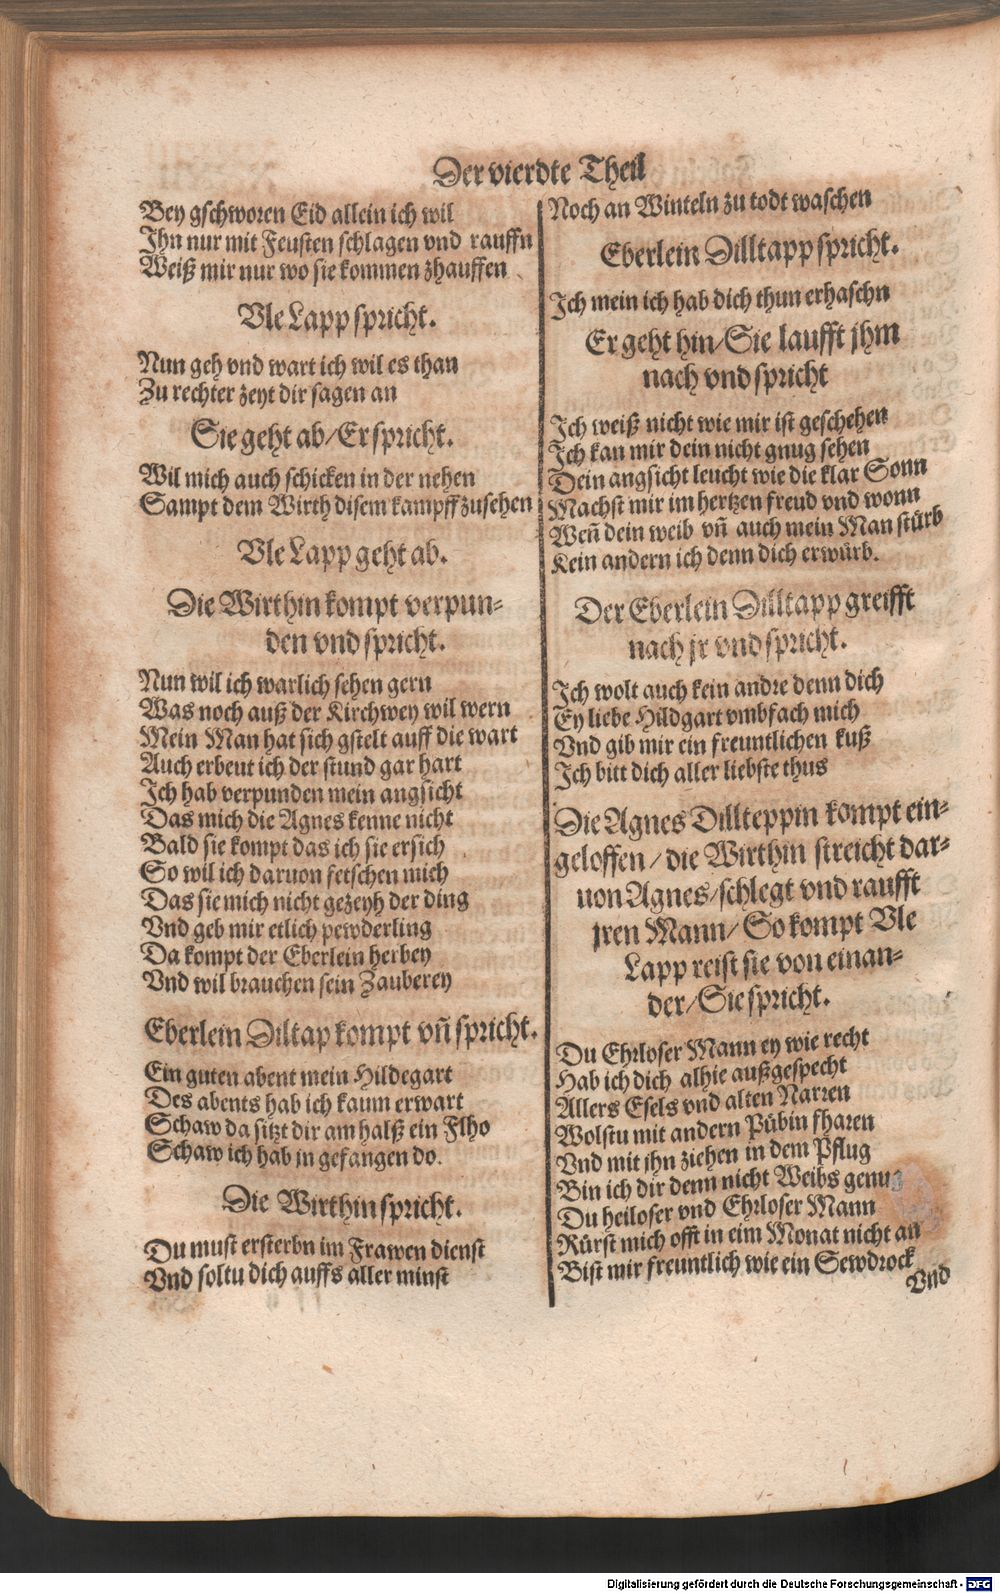 Der vierdte Theil
Bey gschworen Eid allein ich wil
Ihn nur mit Feusten schlagen vnd rauffn
Weiß mir nur wo sie kommen zhauffen
Vle Lapp spricht.
Nun geh vnd wart ich wil es than
Zu rechter zeyt dir sagen an
Sie geht ab/ Er spricht.
Wil mich auch schicken in der nehen
Sampt dem Wirth disem kampff zusehen
Vle Lapp geht ab.
Die Wirthin kompt verpun-
den vnd spricht.
Nun wil ich warlich sehen gern
Was noch auß der Kirchwey wil wern
Mein Man hat sich gstelt auff die wart
Auch erbeut ich der stund gar hart
Ich hab verpunden mein angsicht
Das mich die Agnes kenne nicht
Bald sie kompt das ich sie ersich
So wil ich daruon fetschen mich
Das sie mich nicht gezeyh der ding
Vnd geb mir etlich pewderling
Da kompt der Eberlein herbey
Vnd wil brauchen sein Zauberey
Eberlein Diltap kompt vñ spricht.
Ein guten abent mein Hildegart
Des abents hab ich kaum erwart
Schaw da sitzt dir am halß ein Flho
Schaw ich hab jn gefangen do.
Die Wirthin spricht.
Du must ersterbn im Frawen dienst
Vnd soltu dich auffs aller minst
Noch an Winteln zu todt waschen
Eberlein Dilltapp spricht.
Ich mein ich hab dich thun erhaschn
Er geht hin/ Sie laufft jhm
nach vnd spricht
Ich weiß nicht wie mir ist geschehen
Ich kan mir dein nicht gnug sehen
Dein angsicht leucht wie die klar Sonn
Machst mir im hertzen freud vnd wonn
Weñ dein weib vñ auch mein Man stürb
Kein andern ich denn dich erwürb.
Der Eberlein Dilltapp greifft
nach jr vnd spricht.
Ich wolt auch kein andre denn dich
Ey liebe Hildgart vmbfach mich
Vnd gib mir ein freuntlichen kuß
Ich bitt dich aller liebste thus
Die Agnes Dillteppin kompt ein-
geloffen / die Wirthin streicht dar-
uon Agnes/ schlegt vnd raufft
jren Mann/ So kompt Vle
Lapp reist sie von einan-
der/ Sie spricht.
Du Ehrloser Mann ey wie recht
Hab ich dich alhie außgespecht
Allers Esels vnd alten Narren
Wolstu mit andern Pübin fharen
Vnd mit jhn ziehen in dem Pflug
Bin ich dir denn nicht Weibs genug
Du heiloser vnd Ehrloser Mann
Rürst mich offt in eim Monat nicht an
Bist mir freuntlich wie ein Sewdrock
Vnd
Digitalisierung gefördert durch die Deutsche Forschungsgemeinschaft - DFG